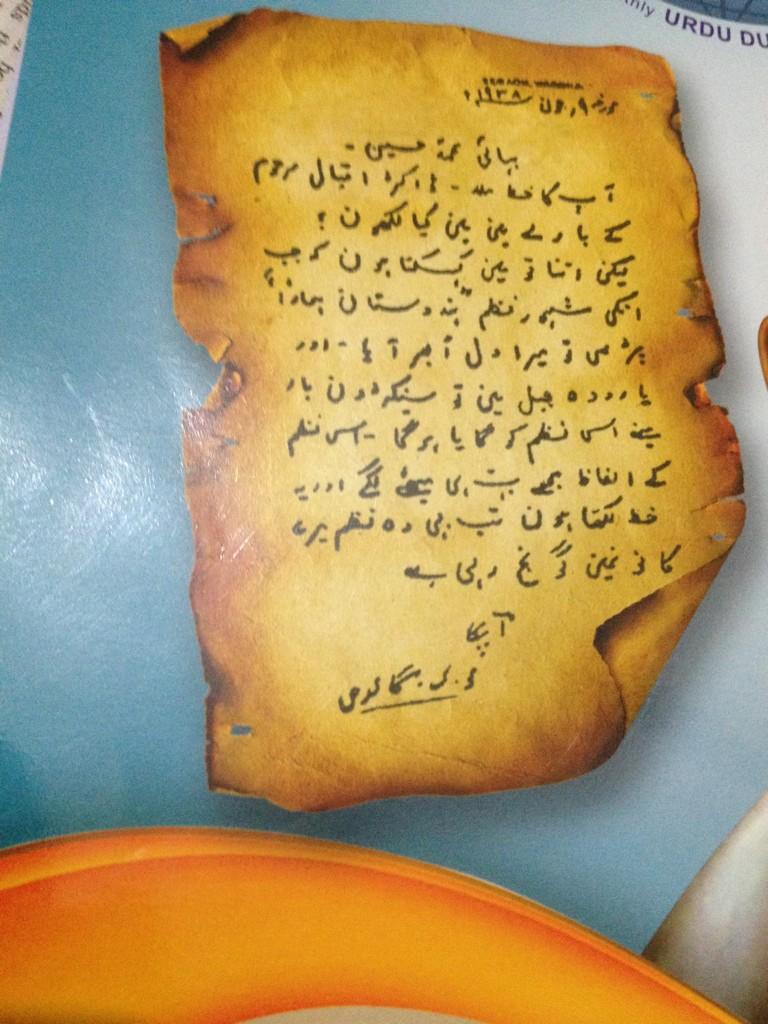 URDU DU
SEGAON, WARDHA
مورخہ ۹ جون سنہ ۱۹۳۸ء
بھائی محمد حسین -
آپ کا خط ملا - ڈاکٹر اقبال مرحوم
کے بارے میں میں کیا لکھوں ؟
لیکن اتنا تو میں کہہ سکتا ہوں کہ جب
انکی مشہور نظم "ہندوستان ہمارا"
پڑھی تو میرا دل اُبھر آیا - اور
یاروده جیل میں تو سینکڑوں بار
میں نے اس نظم کو گایا ہوگا - اس نظم
کے الفاظ مجھے بہت ہی میٹھے لگے اور یہ
خط لکھتا ہوں تب بھی وہ نظم میرے
کانوں میں گونج رہی ہے
آپکا
م. ک. گاندھی